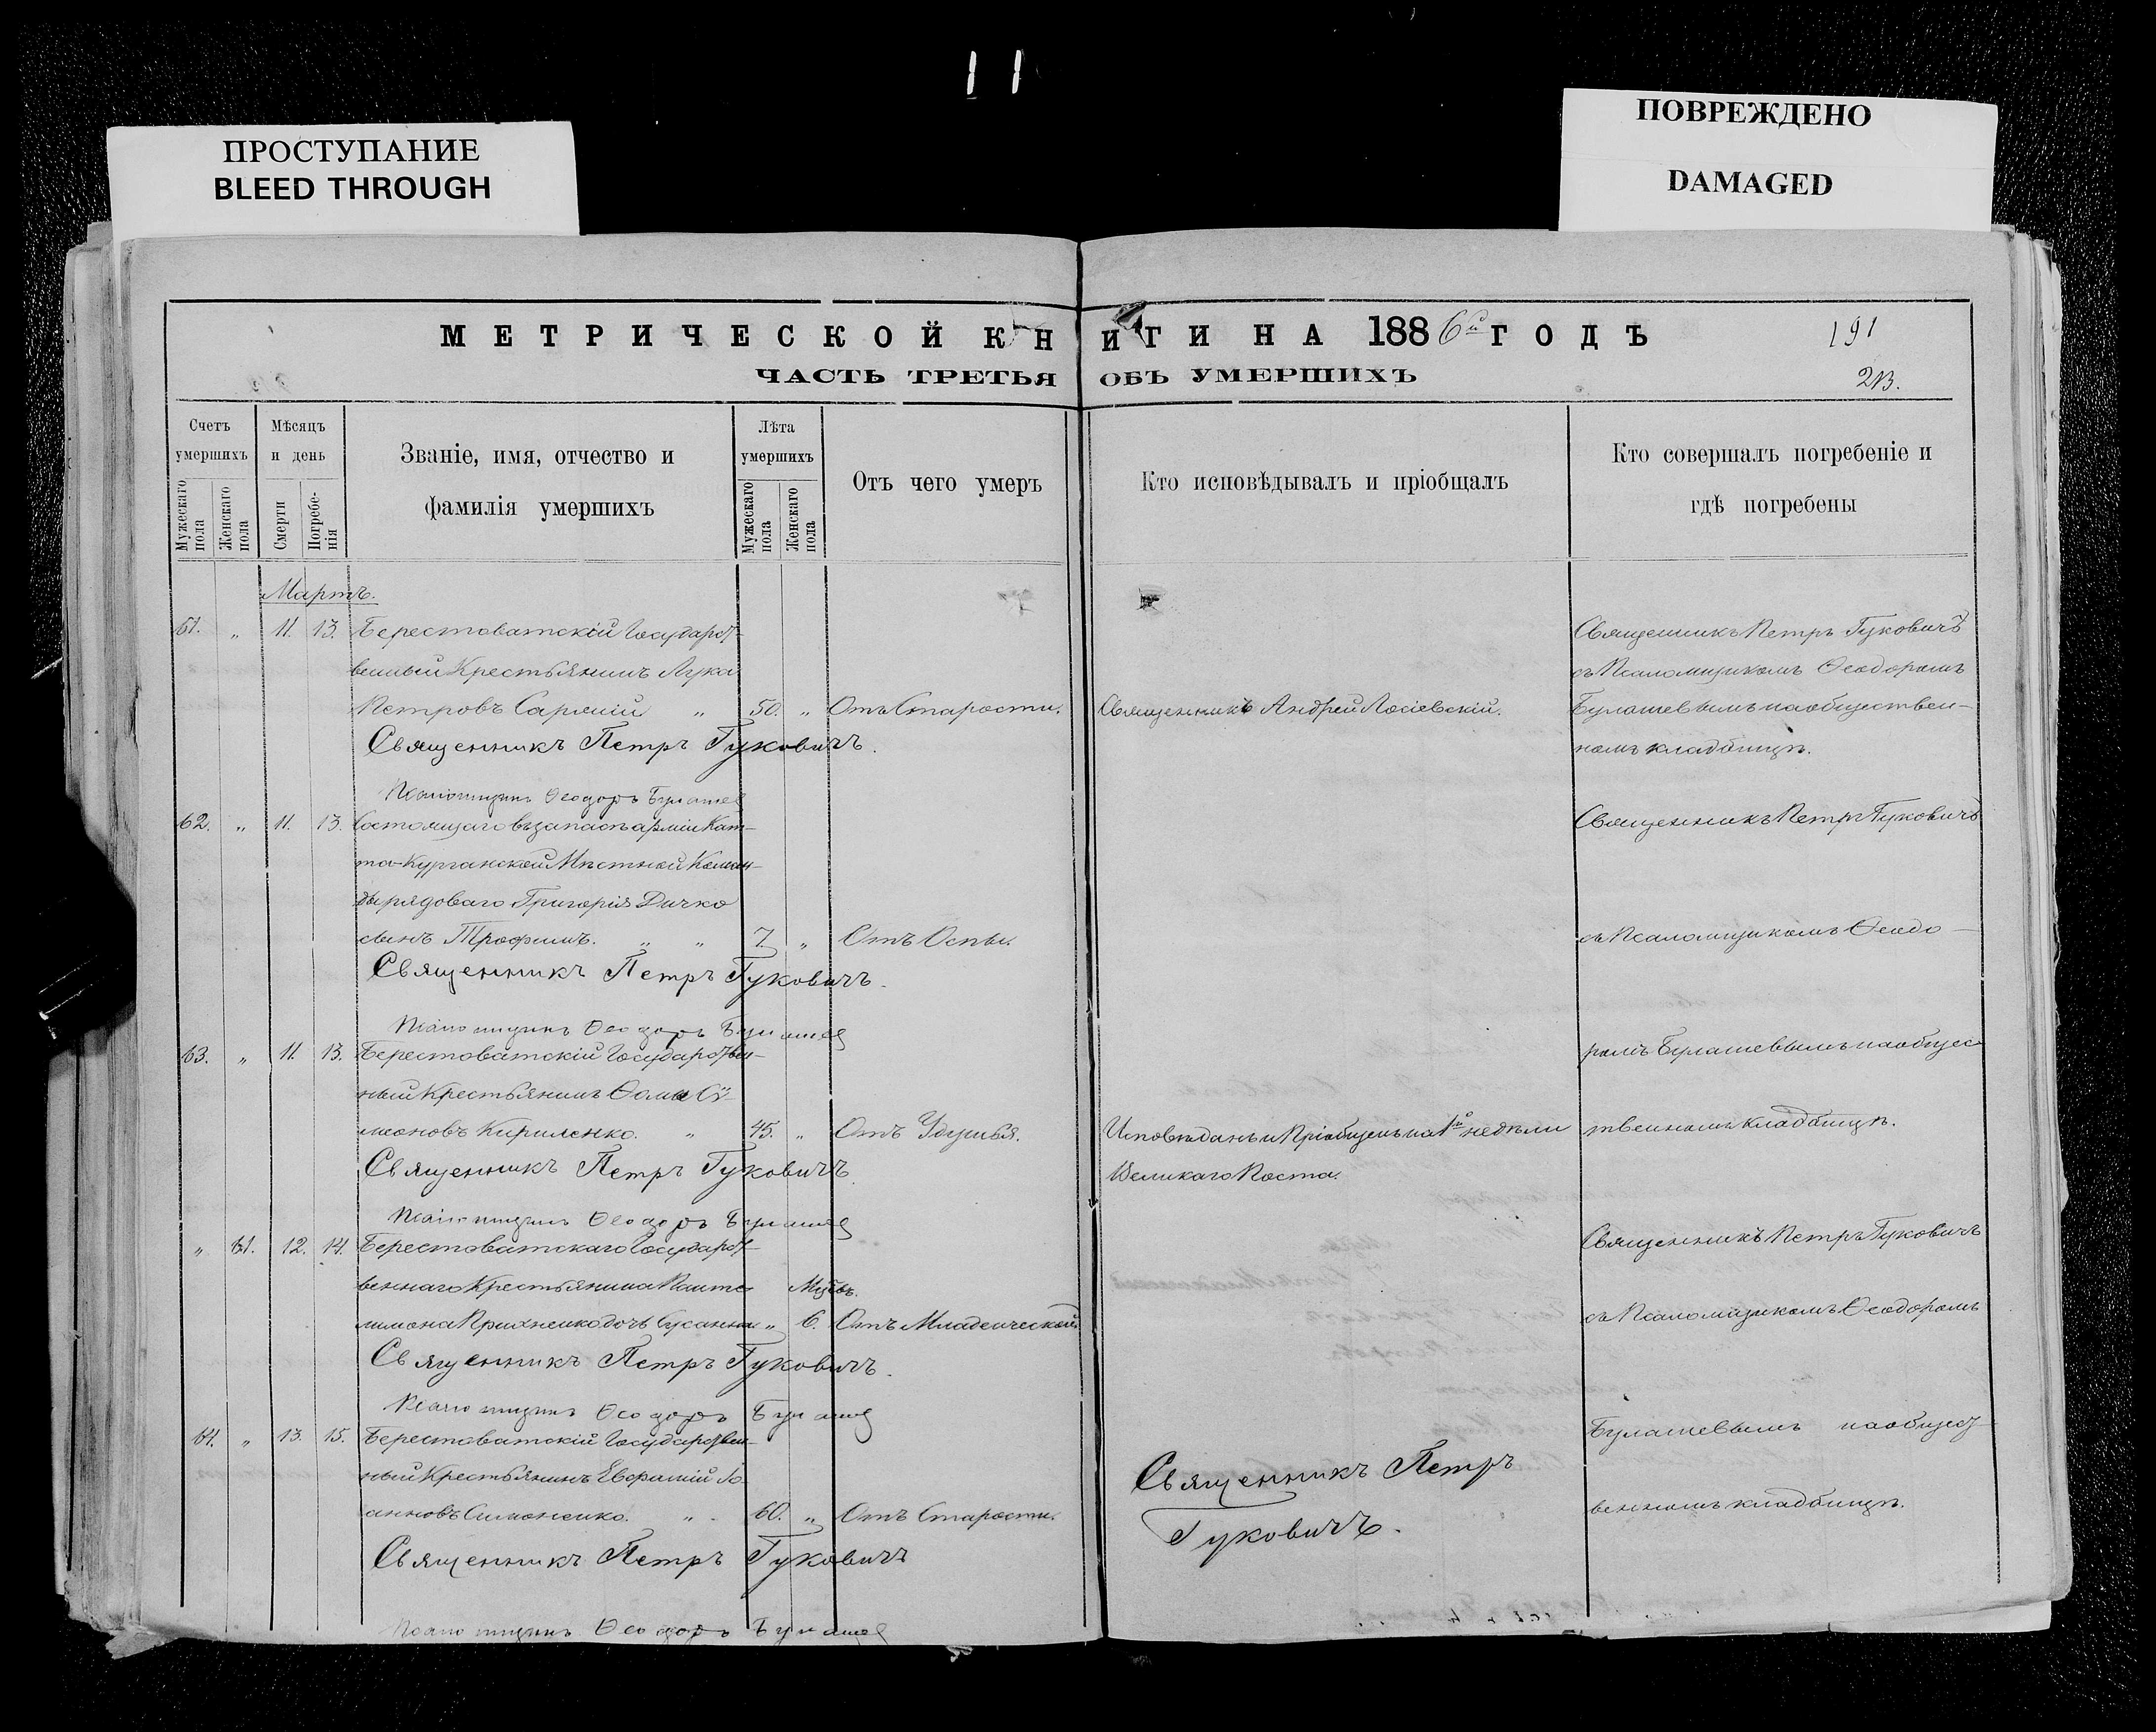 11
ПРОСТУПАНИЕ
BLEED THROUGH
ПОВРЕЖДЕНО
DAMAGED
МЕТРИЧЕСКОЙ КНИГИ НА 1886й ГОДЪ
191
ЧАСТЬ ТРЕТЬЯ ОБЪ УМЕРШИХЪ
213.
Счетъ умершихъ
Мужескаго пола
Женскаго пола
Мѣсяцъ и день
Смерти
Погребенія
Званіе, имя, отчество и
фамилія умершихъ
Лѣта умершихъ
Мужескаго пола
Женскаго пола
Отъ чего умеръ
Кто исповѣдывалъ и пріобщалъ
Кто совершалъ погребеніе и
гдѣ погребены
Мартъ.
61. " 11. 13. Берестоватскій Государст-
венный Крестьянинъ Лука
Петровъ " 50. " Отъ Старости. Священникъ Андрей Лосіевскій.
Священникъ Петръ Гуковичъ.
Псаломщикъ Ѳеодоръ Булашев
Священникъ Петръ Гуковичъ
съ Псаломщикомъ Ѳеодоромъ
Булашевымъ на обществен-
номъ кладбищѣ.
62. " 11. 13. Состоящаго въ запасѣ арміи Кат-
та-Курганской Мѣстной Коман-
ды рядоваго Григорія Дичко
сынъ Трофимъ. " " 7 " Отъ Оспы.
Священникъ Петръ Гуковичъ.
Псаломщикъ Ѳеодоръ Булашев
Священникъ Петръ Гуковичъ
съ Псаломщикомъ Ѳеодо-
63. " 11. 13. Берестоватскій Государствен-
ный Крестьянинъ Ѳома Сѵ-
меоновъ Кириленко. " 45. " Отъ Удушья. Исповѣданъ и Пріобщенъ на 1й недѣли
Великаго Поста.
Священникъ Петръ Гуковичъ.
Псаломщикъ Ѳеодоръ Булашев
ромъ Булашевымъ на общес-
твенномъ кладбищѣ.
" 61. 12. 14. Берестоватскаго Государст-
веннаго Крестьянина Панте- Мцѣв.
лимона Прихненко дочь Сусанна " 6. Отъ Младенческой
Священникъ Петръ Гуковичъ.
Псаломщикъ Ѳеодоръ Булашев
Священникъ Петръ Гуковичъ
съ Псаломщикомъ Ѳеодоромъ
64. " 13. 15. Берестоватскій Государствен-
ный Крестьянинъ Іо-
анновъ Симоненко. " 60. " Отъ Старости.
Священникъ Петръ Гуковичъ
Псаломщикъ Ѳеодоръ Булашев
Священникъ Петръ
Гуковичъ.
Булашевымъ на общест-
венномъ кладбищѣ.